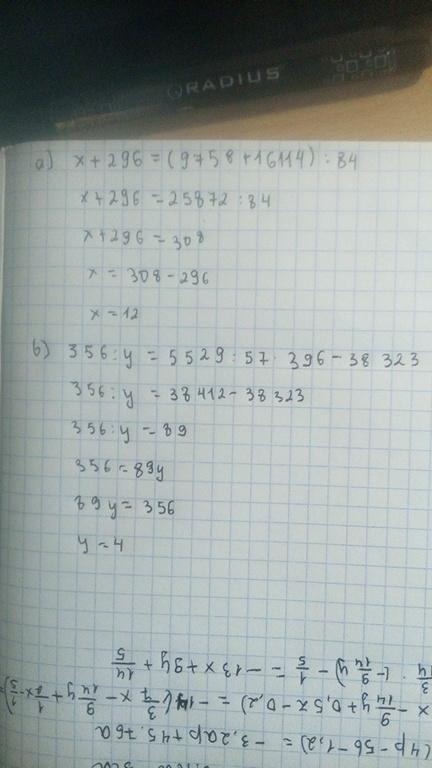 RADIUS
а) x + 296 = (9758 + 16114) : 84
x + 296 = 25872 : 84
x + 296 = 308
x = 308 - 296
x = 12
б) 356 : y = 5529 : 57 · 396 - 38 323
356 : y = 38 412 - 38 323
356 : y = 89
356 = 89y
89y = 356
y = 4
3/14 · (-9/14 y) - 1/5 = -13x + 9y + 14/5
x - 9/14 y + 0,5x - 0,2) = -14 (3/7 x - 9/14 y + 1/2 x - 1/5) =
(4p - 56 - 1,2) = -3,2ap + 45,76a